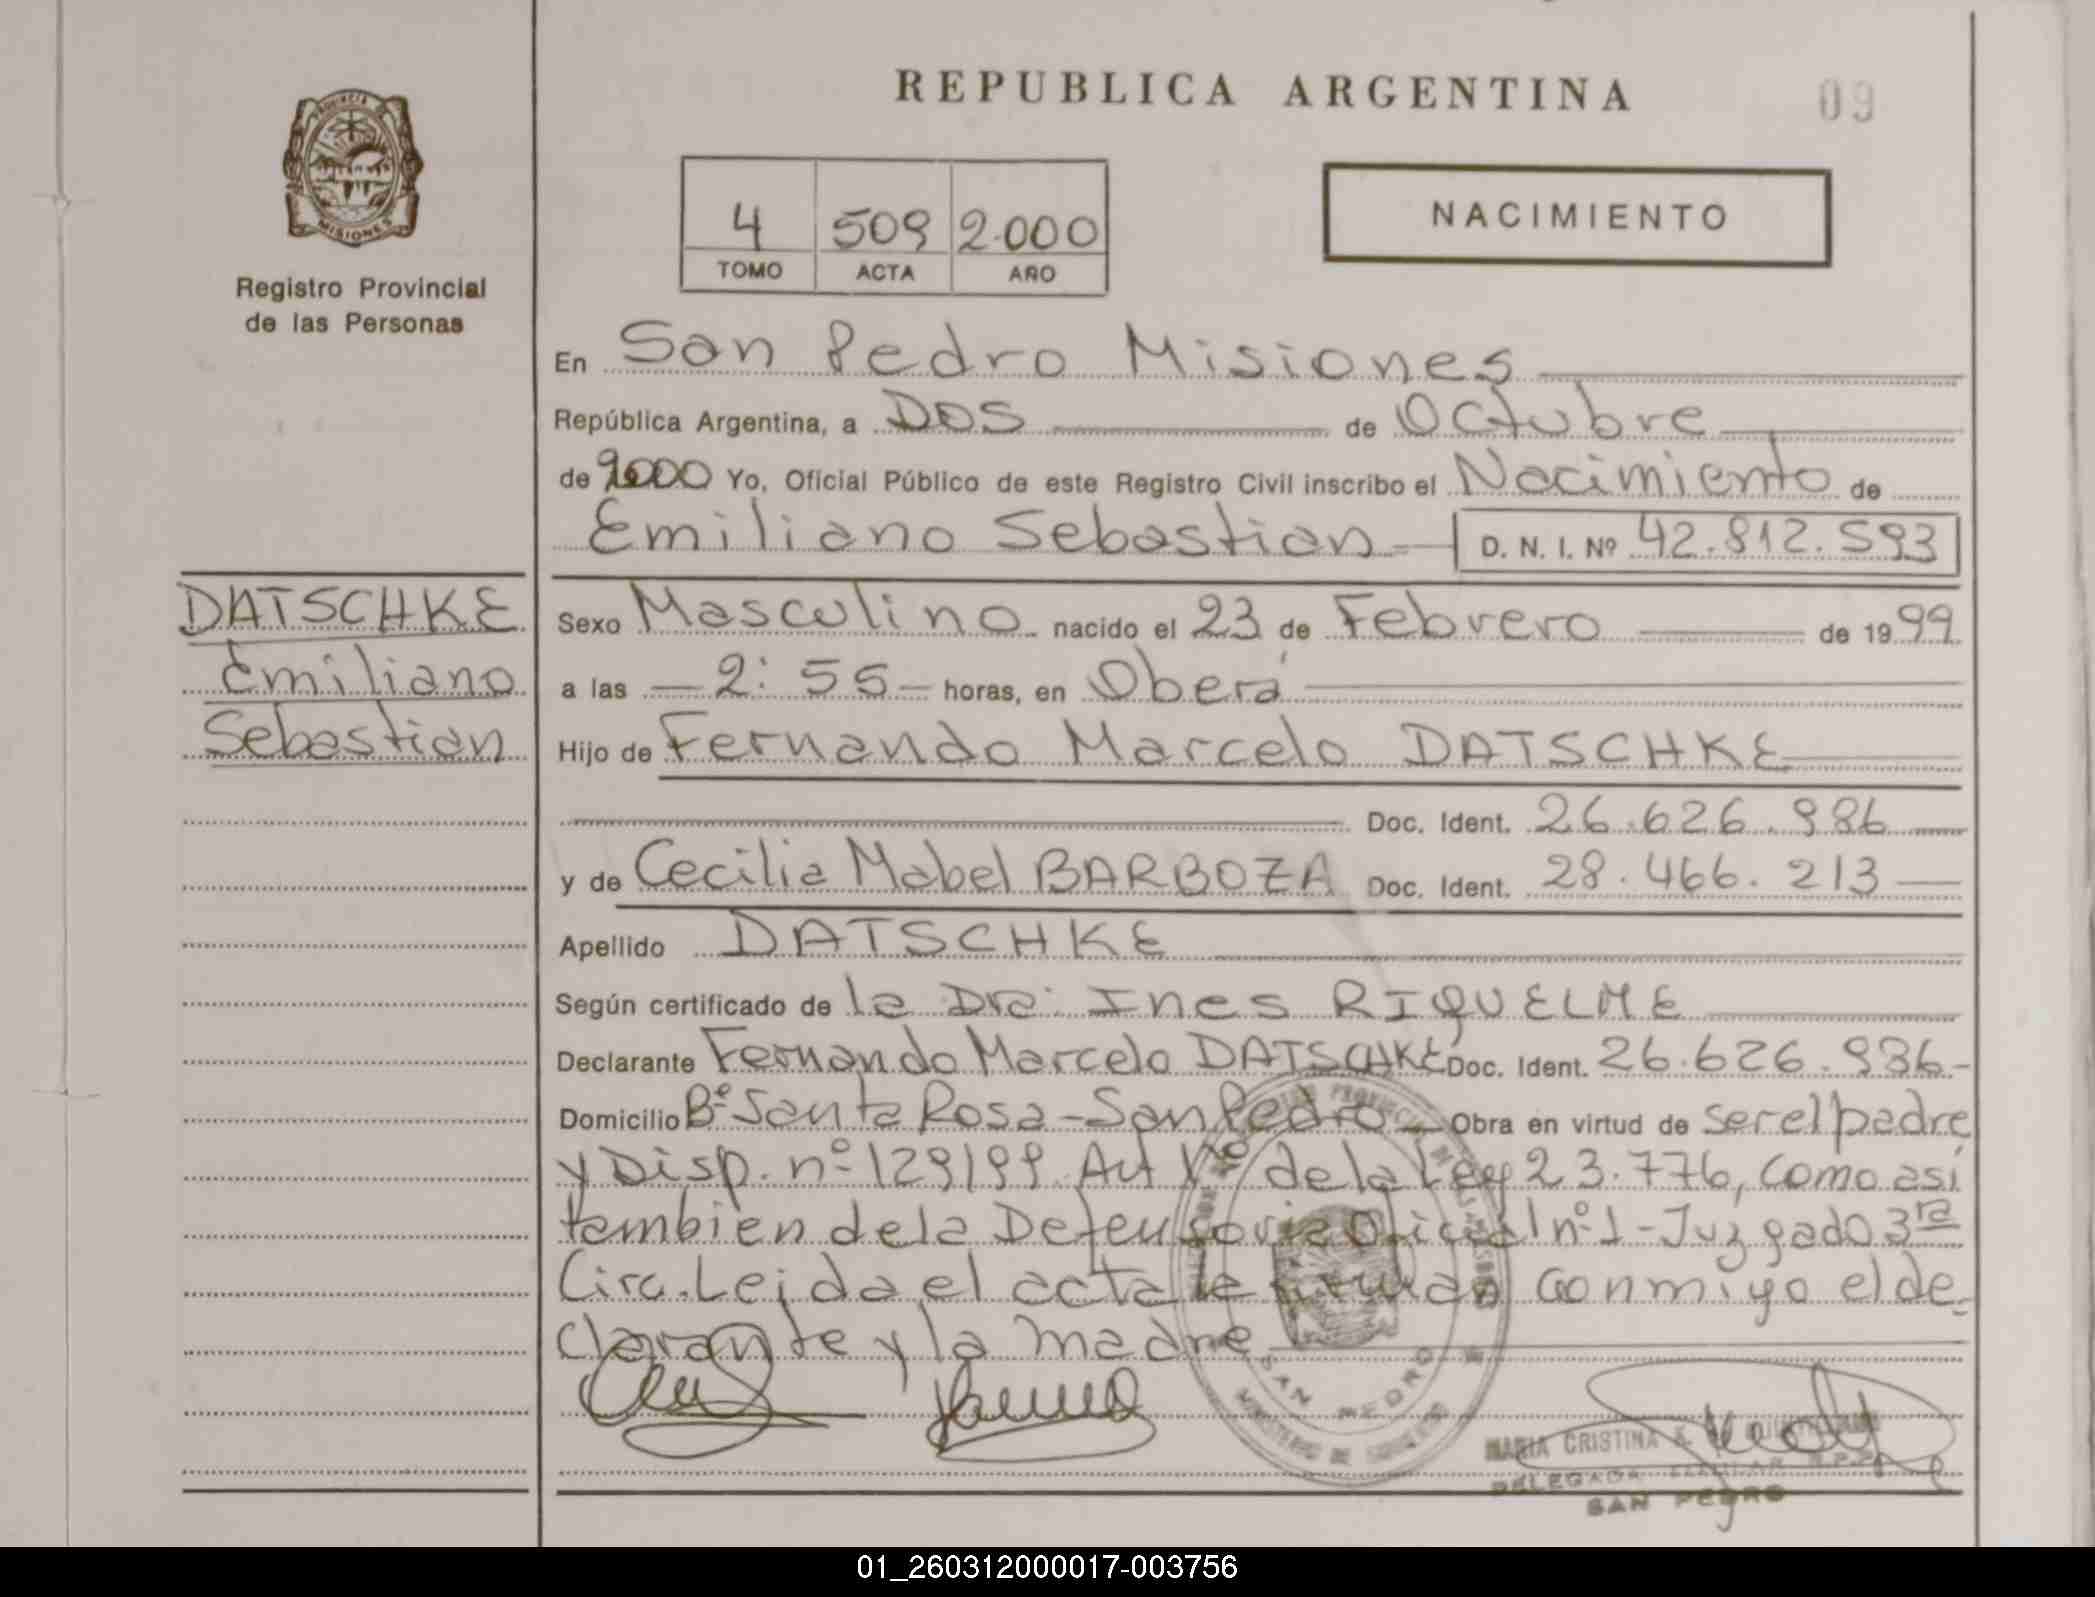 REPUBLICA ARGENTINA
09
PROVINCIA
MISIONES
Registro Provincial
de las Personas
4 509 2.000
TOMO ACTA AÑO
NACIMIENTO
En San Pedro Misiones
República Argentina, a Dos de Octubre
de 2000 Yo, Oficial Público de este Registro Civil inscribo el Nacimiento de
Emiliano Sebastian D. N. I. Nº 42.812.593
DATSCHKE
Emiliano
Sebastian
Sexo Masculino nacido el 23 de Febrero de 1999
a las 2:55 horas, en Oberá
Hijo de Fernando Marcelo DATSCHKE
Doc. Ident. 26.626.986
y de Cecilia Mabel BARBOZA Doc. Ident. 28.466.213
Apellido DATSCHKE
Según certificado de la Dra. Ines RIQUELME
Declarante Fernando Marcelo DATSCHKE Doc. Ident. 26.626.986-
Domicilio Bº Santa Rosa-San Pedro Obra en virtud de ser el padre
y Disp. nº 129/99 Art 1º de la Ley 23.776, como así
tambien de la Defensoria Oficial nº 1-Juzgado 3ra
Circ. Leida el acta la firman conmigo el de-
clarante y la madre
SAN PEDRO
MINISTERIO DE GOBIERNO
MARIA CRISTINA
DELEGADA TITULAR R.P.P.
SAN PEDRO
01_260312000017-003756